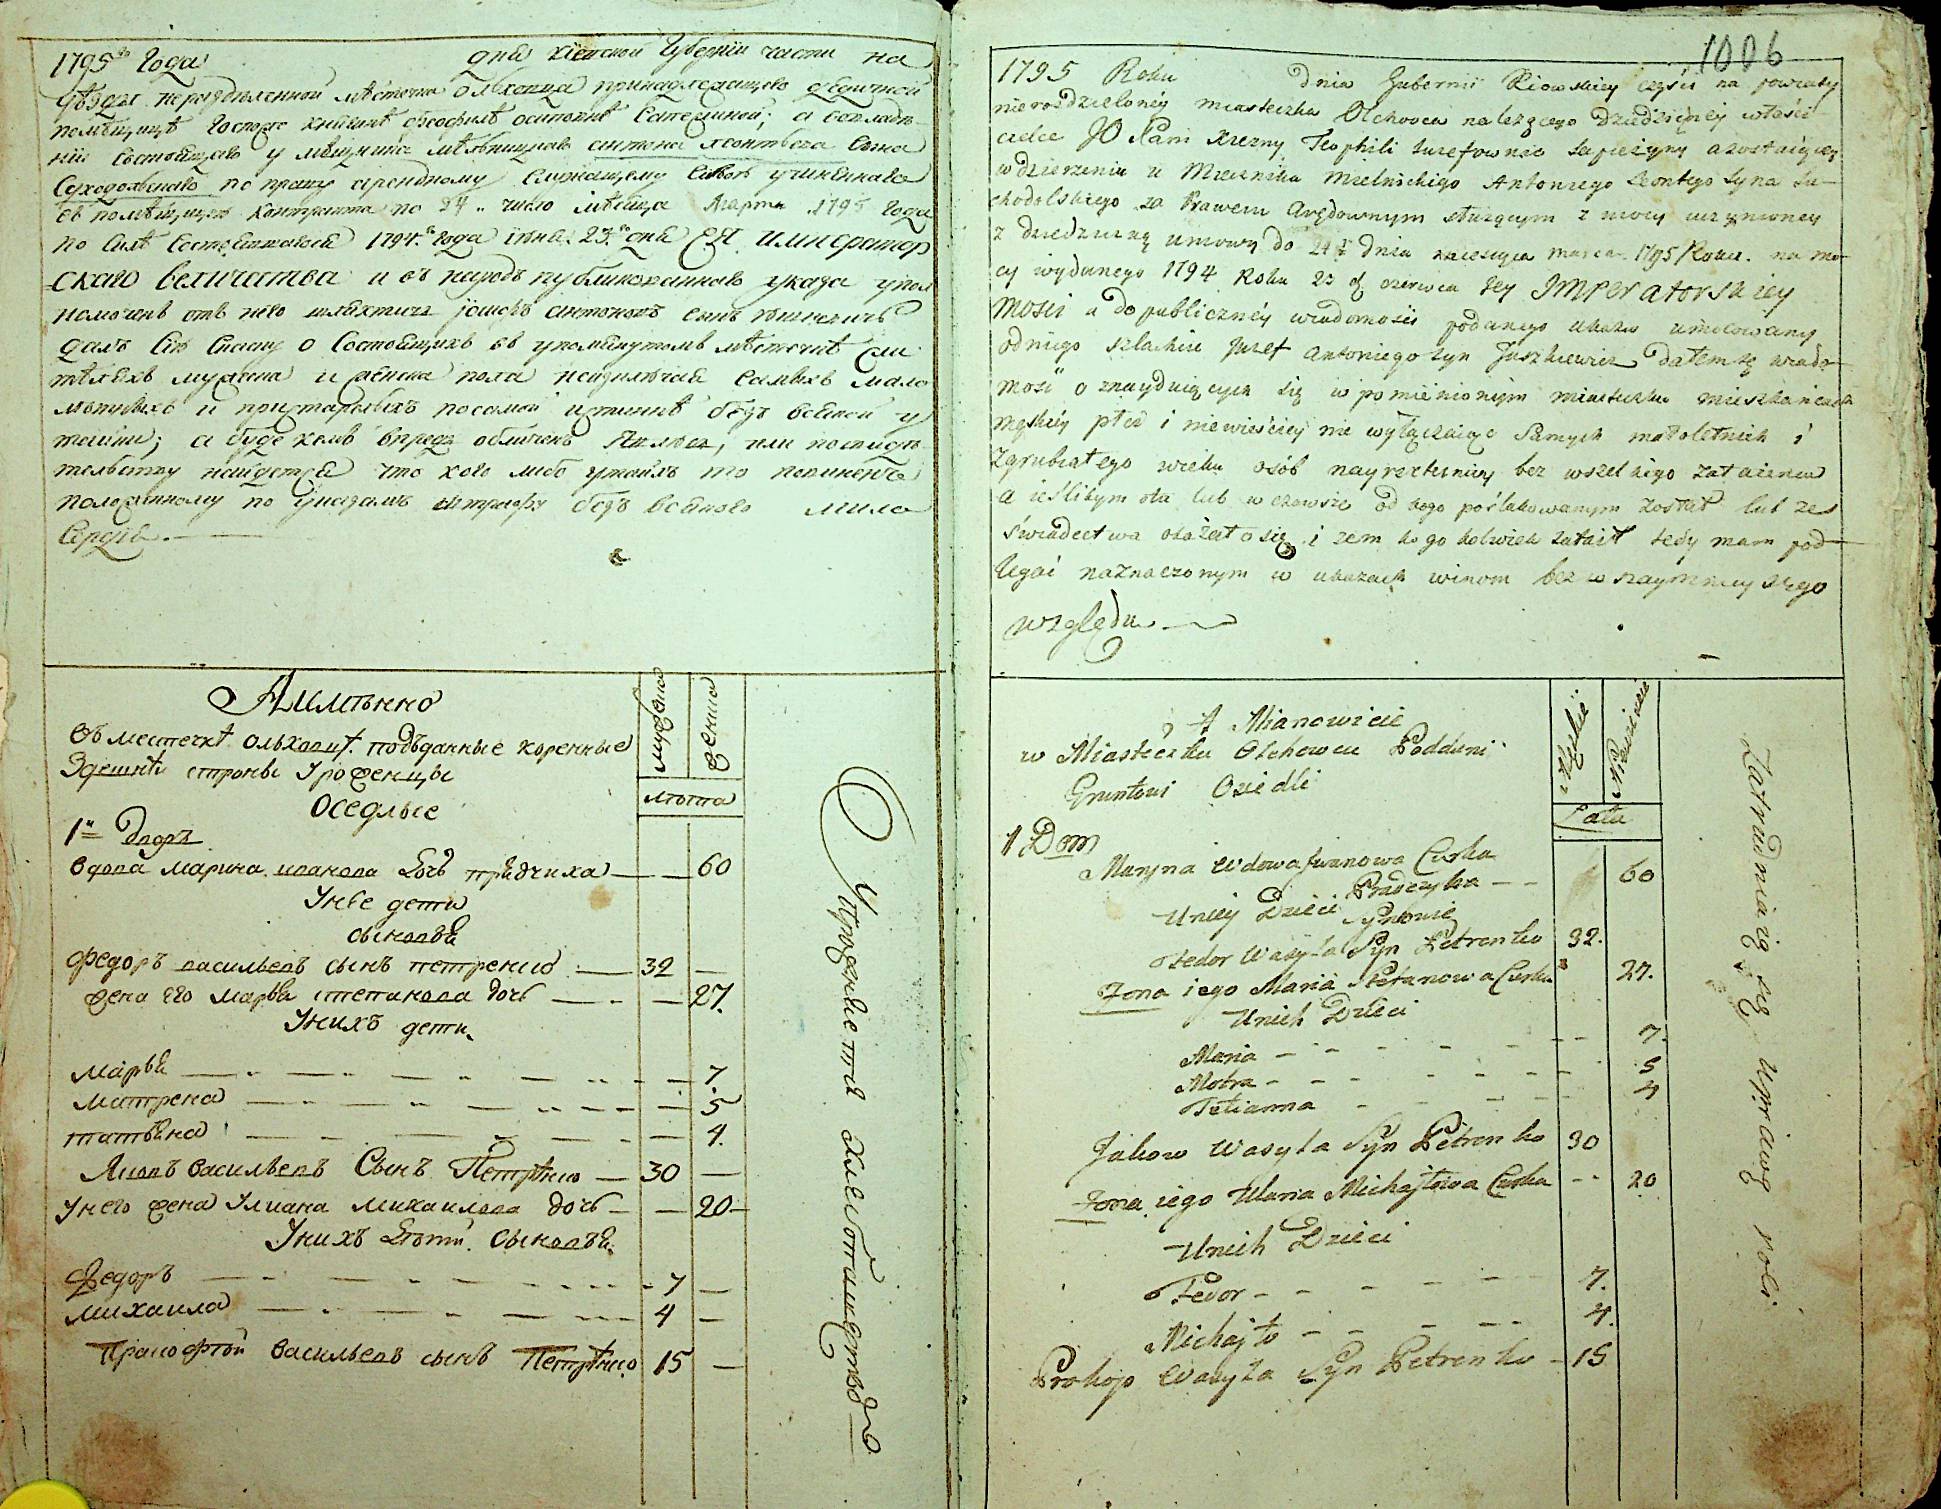 1795го Года дня Кіевской Губерніи части на
уѣзды нераздѣленной мѣстечка Ольховца принадлежащаго дѣдичной
помѣщицѣ Госпоже Княгинѣ Феофилѣ Осиповнѣ Сапежиной; а во владѣ-
ніи состоящаго у мѣщника Антона Леонтьева сына
Суходольскаго по праву арендному служащему съ учиненнаго
съ помѣщицею контракта по 24. число мѣсяца Марта 1795 Года
по силѣ состоявшагося 1794.го Года іюня. 23.го дня ЕЯ Император
скаго Величества и въ народъ публикованнаго указа упол
номоченъ отъ него шляхтичъ Іосифъ Антоновъ сынъ
далъ сію сказку о состоящихъ въ упомянутомъ мѣстечкѣ
мужеска и женска пола самыхъ мало
лѣтнихъ и престарелыхъ по самой истиннѣ безъ всякой у
тайки; а буде кемъ впредь обличенъ или по свидѣ
тельству найдется что кого либо утаилъ то повиненъ
положенному по указамъ штрафу безъ всякого мило
сердія.
А именно
въ местечкѣ Ольховцѣ. подъданные коренные
Здешнѣй стороны Уроженцы
Оседлые
мужеска
женска
лѣта
1й дворъ
вдова марина иванова дочь 60
У нее дети
сыновья
Федоръ васильевъ сынъ петренко 32
жена его марья степанова дочь 27.
У нихъ дети
марья 7.
матрена 5
татьяна 4.
Яковъ васильевъ Сынъ Петрѣнко 30
У него жена Улиана михаилова дочь 20
У нихъ дѣти сыновья
Федоръ 7
михаила 4
Прокофтѣй васильевъ сынъ Петрѣнко 15
Упражняется хлебопашествомъ
1006
1795 Roku dnia Gubernii Kiowskiey części na powiaty
nierozdzieloney miasteczka Olchowca należącego Dziedziczney właści-
cielce JO Pani Xiężny Teophili Juzefownie Sapieżyny a zostaiącego
w dzierżeniu u Miecznika Mielnickiego Antoniego Leontego Syna Su-
chodolskiego za Prawem Arędownym służącym z mocy uczynioney
z dziedziczką umowy do 24go dnia miesiąca marca 1795 Roku. na mo-
cy wydanego 1794 Roku 23 d czerwca Jey IMPeratorskiey
Mości a do publiczney wiadomości podanego ukazu umocowany
od niego szlachcic Juzef Antoniego syn Juszkiewicz dałem tę wiado-
mość o znayduiących się w pomienionym miasteczku mieszkańcach
męskiey płci i niewieściey nie wyłączaiąc samych małoletnich i
zgrubiałego wieku osób nayrzetelniey bez wszelkiego zataienia
a ieślibym ola lub w czowsie od kogo poślakowanym został lub ze
świadectwa okazało się i żem kogokolwiek zataił tedy mam pod-
legać naznaczonym w ukazach winom bez w naymnieyszego
względu
A Mianowicie
w Miasteczku Olchowcu Poddani
Gruntowi Osiedli
Męskie
Niewieście
Lata
1 Dom
Maryna Wdowa Iwanowa Curka 60
U niey Dzieci Synowie
Fedor Wasyla Syn Petrenko 32.
Żona iego Maria Stefanowa Curka 27.
U nich Dzieci
Maria 7.
Motra 5
Tetianna 4
Jakow Wasyla Syn Petrenko 30
Żona iego Uliana Michajłowa Curka 20
U nich Dzieci
Fedor 7.
Michajło 4.
Prokop Wasyla Syn Petrenko 15
Zatrudniaią się uprawą roli